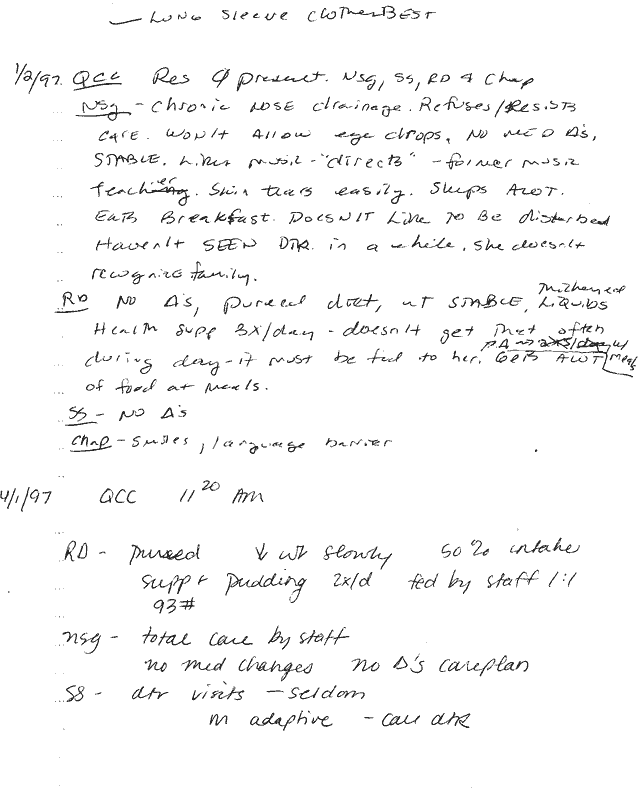 — LONG SLEEVE CLOTHES BEST
1/2/97. QCC Res Ø present. Nsg, SS, RD & Chap
Nsg - Chronic NOSE drainage. Refuses/RESISTS
CARE. WON't Allow eye drops, NO MED Δ's,
STABLE. Likes music - "directs" - former music
teacher. Skin tears easily. Sleeps ALOT.
EATS Breakfast. DoesN't Like TO BE disturbed
Haven't SEEN DTR. in a while. She doesn't
recognize family.
RD NO Δ's, pureed diet, wt STABLE, Thickened LIQUIDS
Health Supp 3X/day - doesn't get that often
during day - it must be fed to her. Gets ALOT w/ meals
of food at meals.
SS - NO Δ's
Chap - Smiles, language barrier
4/1/97 QCC 11 20 AM
RD - pureed ↓ wt slowly 50% intake
suppt pudding 2x/d fed by staff 1:1
93#
nsg - total care by staff
no med changes no Δ's careplan
SS - dtr visits - seldom
adaptive - call dtr